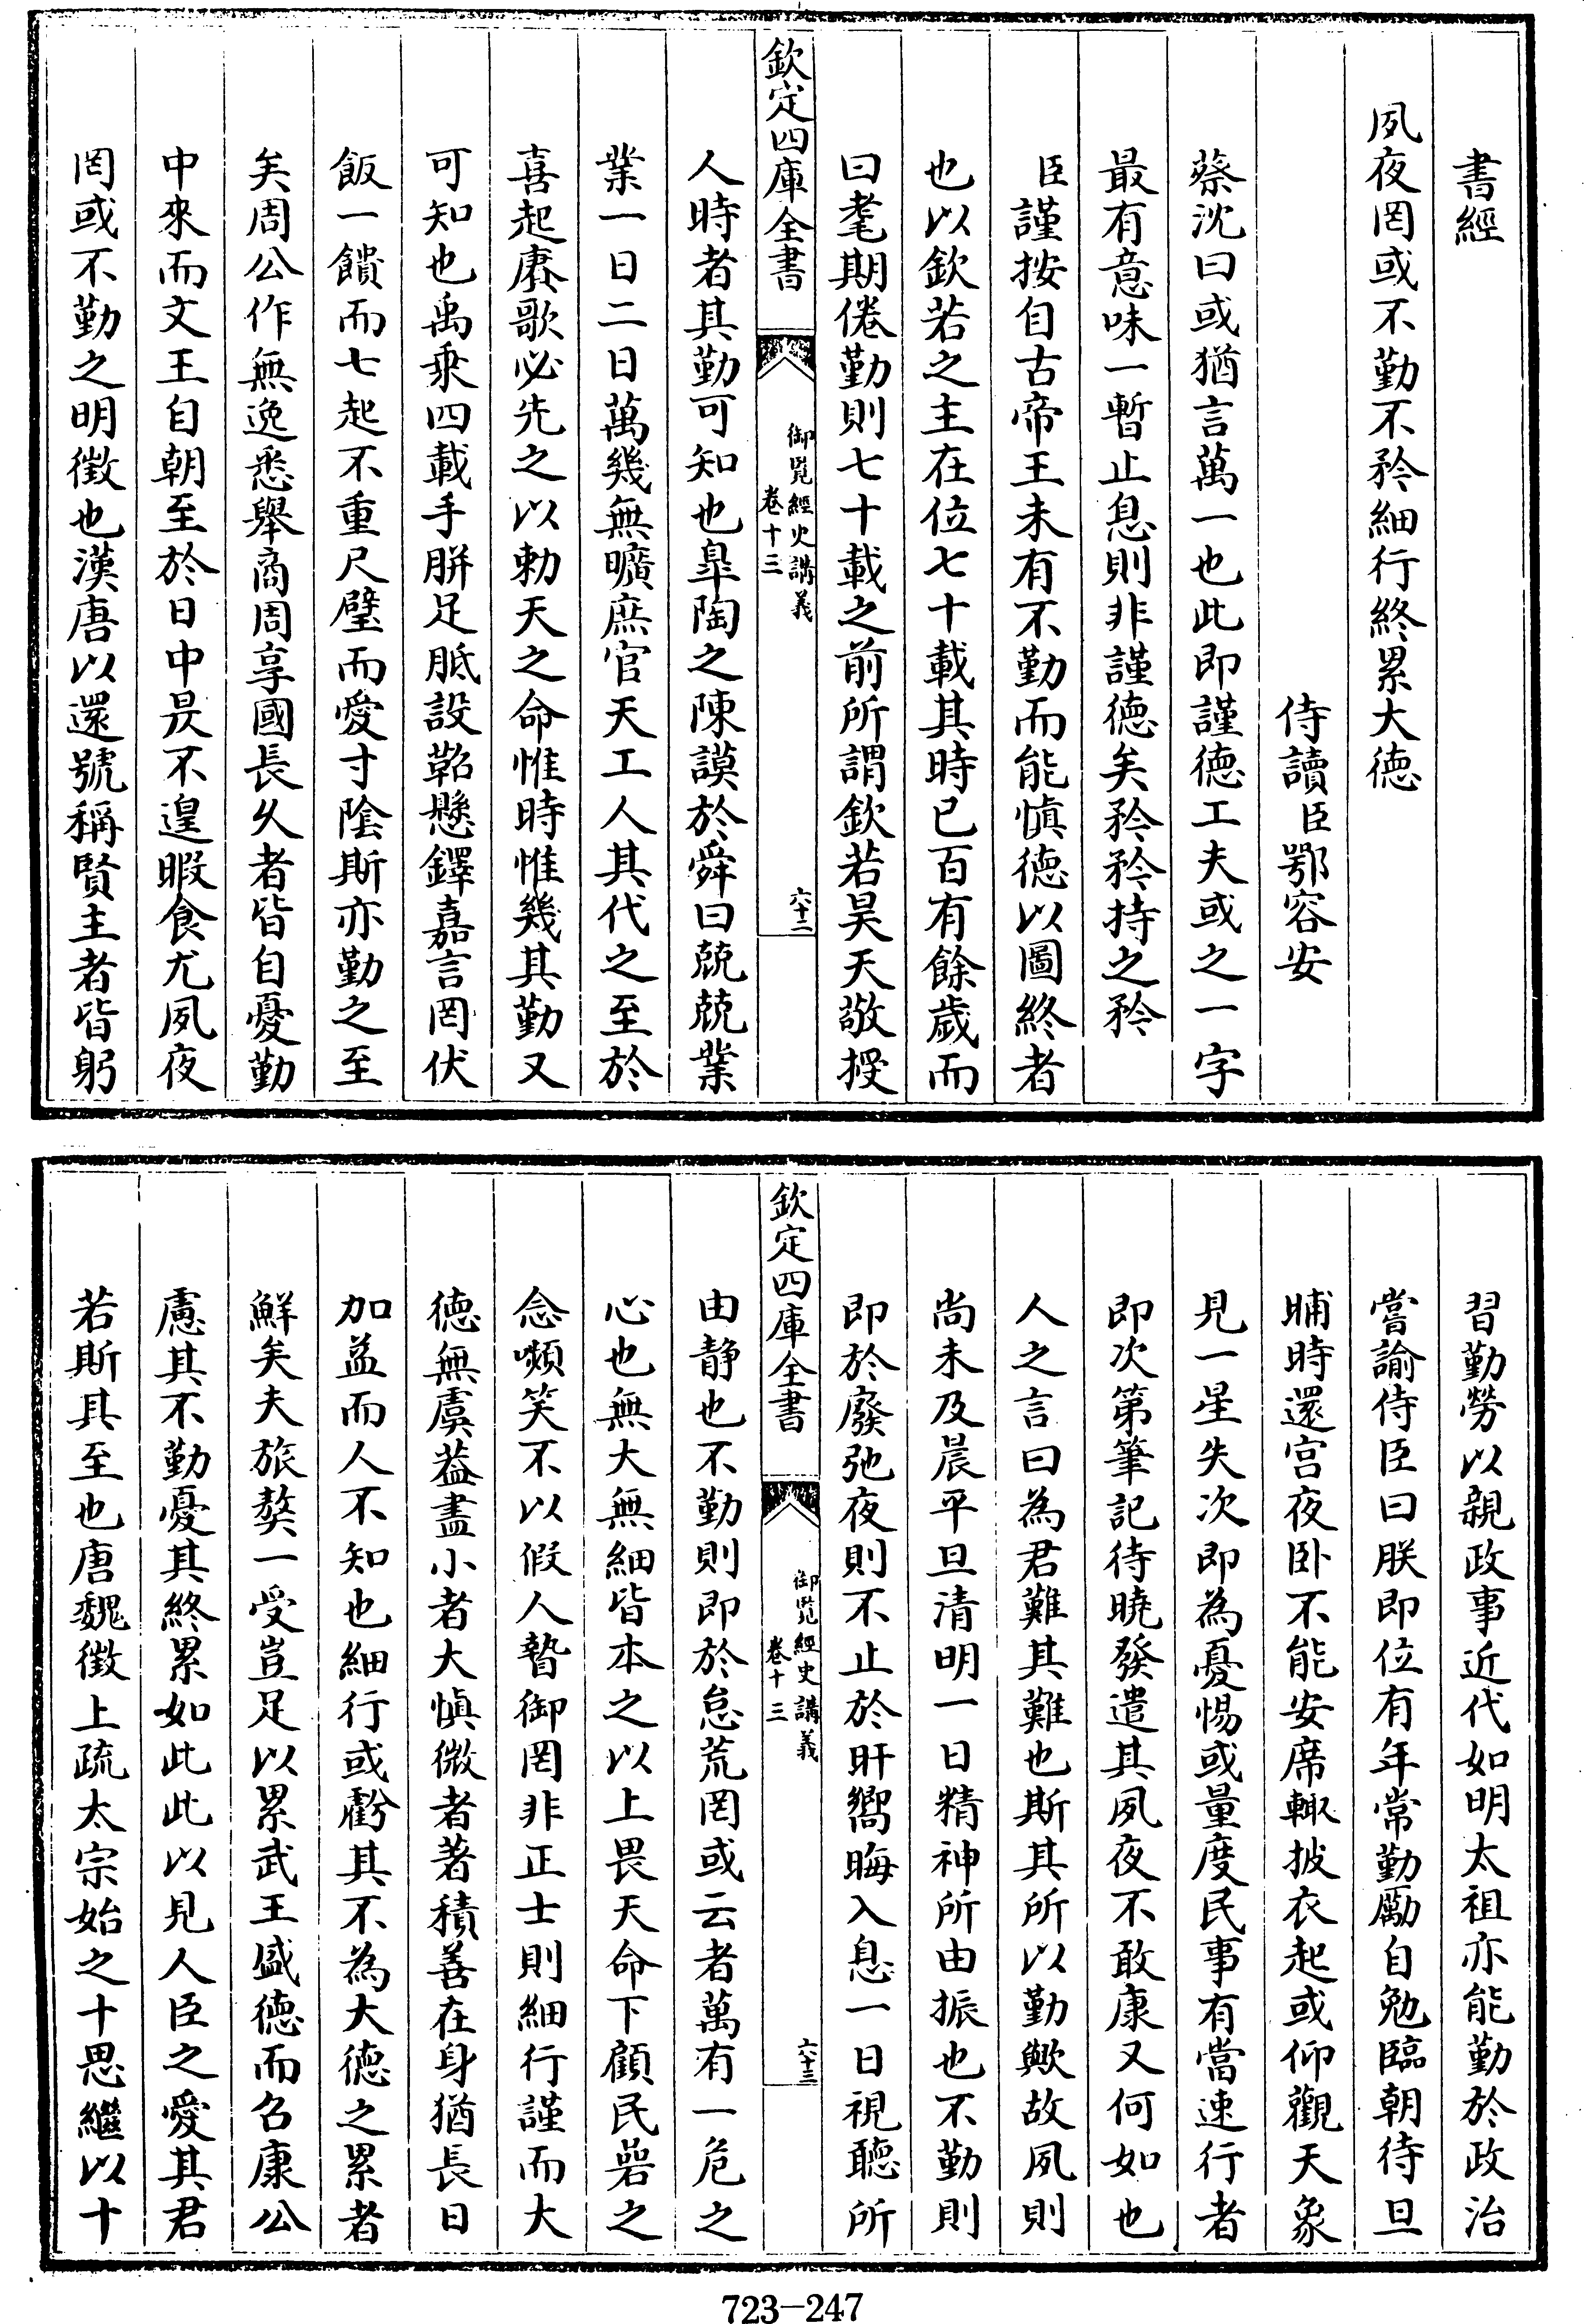 書經
夙夜罔或不勤不矜細行終累大徳
侍讀臣鄂容安
蔡沈曰或猶言萬一也此即謹徳工夫或之一字
最有意味一暫止息則非謹徳矣矜矜持之矜
臣謹按自古帝王未有不勤而能慎徳以圖終者
也以欽若之主在位七十載其時已百有餘歲而
曰耄期倦勤則七十載之前所謂欽若昊天敬授
欽定四庫全書
御覧經史講義
卷十三
六十二
人時者其勤可知也臯陶之陳謨於舜曰兢兢業
業一日二日萬幾無曠庶官天工人其代之至於
喜起賡歌必先之以勅天之命惟時惟幾其勤又
可知也禹乗四載手胼足胝設鞀懸鐸嘉言罔伏
飯一饋而七起不重尺璧而愛寸陰斯亦勤之至
矣周公作無逸悉舉商周享國長久者皆自憂勤
中來而文王自朝至於日中昃不遑暇食尤夙夜
罔或不勤之明徴也漢唐以還號稱賢主者皆躬
習勤勞以親政事近代如明太祖亦能勤於政治
嘗諭侍臣曰朕即位有年常勤勵自勉臨朝待旦
晡時還宫夜卧不能安席輙披衣起或仰觀天象
見一星失次即為憂惕或量度民事有當速行者
即次第筆記待曉發遣其夙夜不敢康又何如也
人之言曰為君難其難也斯其所以勤歟故夙則
尚未及晨平旦清明一日精神所由振也不勤則
即於廢弛夜則不止於旰嚮晦入息一日視聽所
欽定四庫全書
御覧經史講義
卷十三
六十三
由静也不勤則即於怠荒罔或云者萬有一危之
心也無大無細皆本之以上畏天命下顧民碞之
念嚬笑不以假人暬御罔非正士則細行謹而大
徳無虞葢盡小者大慎微者著積善在身猶長日
加益而人不知也細行或虧其不為大徳之累者
鮮矣夫旅獒一受豈足以累武王盛徳而召康公
慮其不勤憂其終累如此此以見人臣之愛其君
若斯其至也唐魏徴上疏太宗始之十思繼以十
723—247